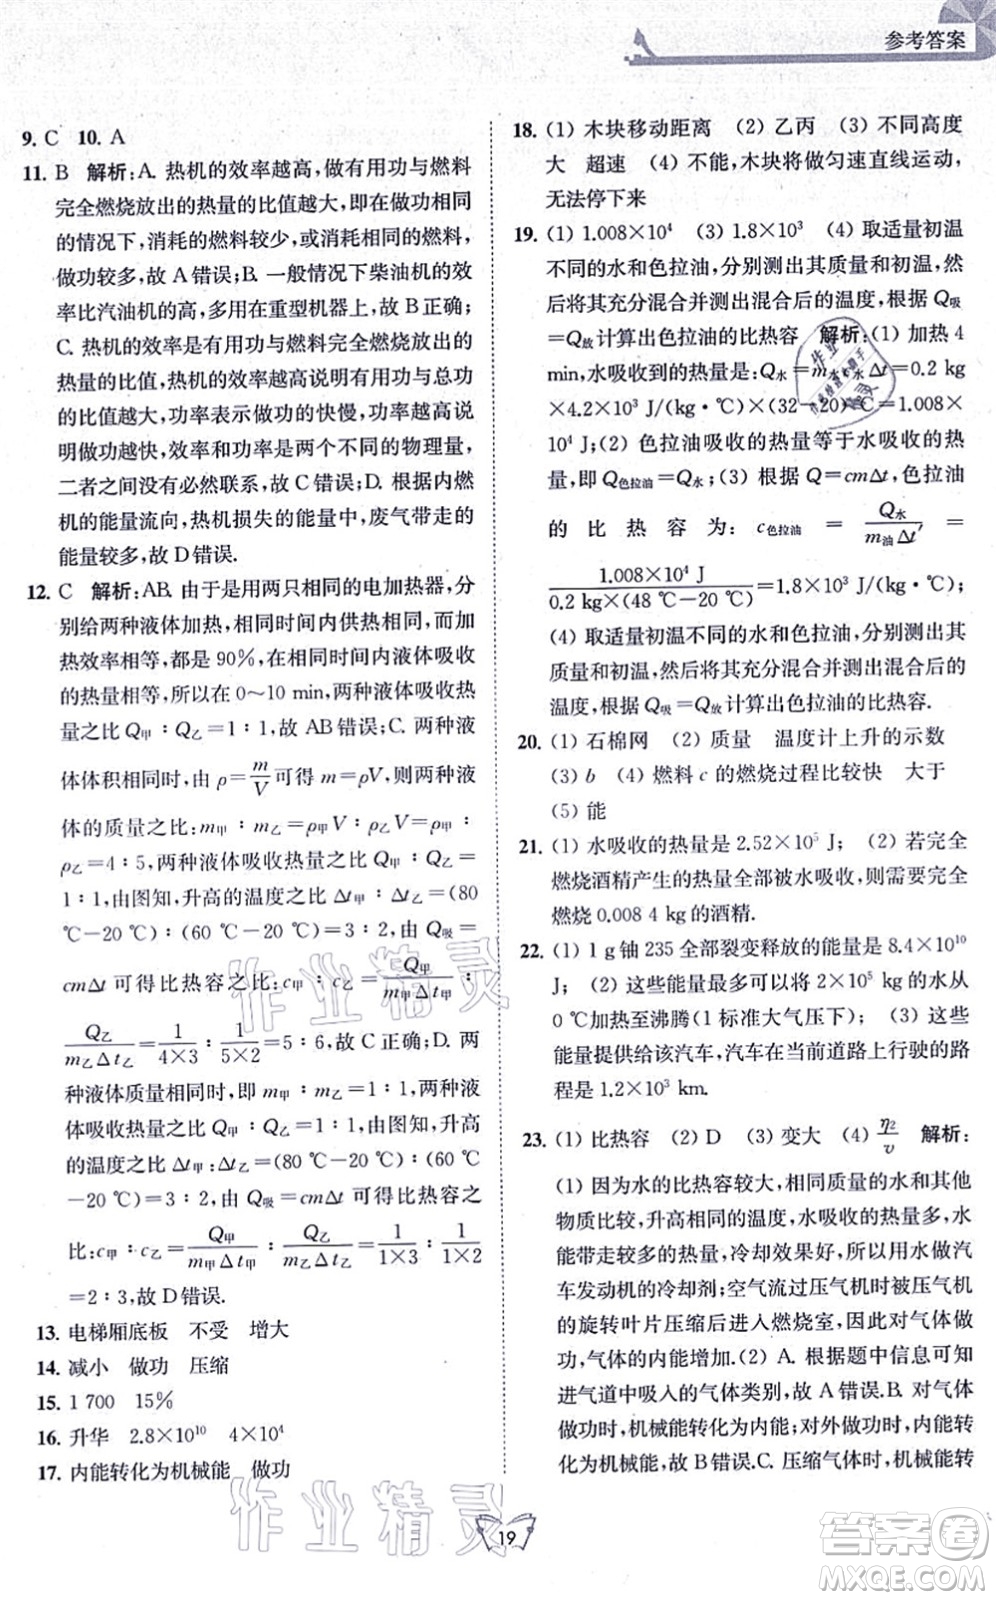 参考答案
9. C 10. A
11. B 解析:A. 热机的效率越高,做有用功与燃料
完全燃烧放出的热量的比值越大,在做功相同
的情况下,消耗的燃料较少,或消耗相同的燃料
做功较多,故 A 错误;B. 一般情况下柴油机的效
率比汽油机的高,多用在重型机器上,故 B 正确;
C. 热机的效率是有用功与燃料完全燃烧放出的
热量的比值,热机的效率越高说明有用功与总功
的比值越大,功率表示做功的快慢,功率越高说
明做功越快,效率和功率是两个不同的物理量,
二者之间没有必然联系,故 C 错误;D. 根据内燃
机的能量流向,热机损失的能量中,废气带走的
能量较多,故 D 错误.
12. C 解析:AB. 由于是用两只相同的电加热器,分
别给两种液体加热,相同时间内供热相同,而加
热效率相等,都是 90%,在相同时间内液体吸收
的热量相等,所以在 0～10 min,两种液体吸收热
量之比 Q甲∶Q乙=1∶1,故 AB 错误;C. 两种液
体体积相同时,由 ρ=m/V 可得 m=ρV,则两种液
体的质量之比:m甲∶m乙=ρ甲V∶ρ乙V=ρ甲∶
ρ乙=4∶5,两种液体吸收热量之比 Q甲∶Q乙=
1∶1,由图知,升高的温度之比 Δt甲∶Δt乙=(80
℃-20 ℃)∶(60 ℃-20 ℃)=3∶2,由 Q吸=
cmΔt 可得比热容之比:c甲∶c乙=Q甲/m甲Δt甲∶
Q乙/m乙Δt乙=1/4×3∶1/5×2=5∶6,故 C 正确;D. 两
种液体质量相同时,即 m甲∶m乙=1∶1,两种液
体吸收热量 Q甲∶Q乙=1∶1,由图知,升高
的温度之比 Δt甲∶Δt乙=(80 ℃-20 ℃)∶(60 ℃
-20 ℃)=3∶2,由 Q吸=cmΔt 可得比热容之
比:c甲∶c乙=Q甲/m甲Δt甲∶Q乙/m乙Δt乙=1/1×3∶1/1×2
=2∶3,故 D 错误.
13. 电梯厢底板 不受 增大
14. 减小 做功 压缩
15. 1 700 15%
16. 升华 2.8×10¹⁰ 4×10⁴
17. 内能转化为机械能 做功
18. (1) 木块移动距离 (2) 乙丙 (3) 不同高度
大 超速 (4) 不能,木块将做匀速直线运动,
无法停下来
19. (1) 1.008×10⁴ (3) 1.8×10³ (4) 取适量初温
不同的水和色拉油,分别测出其质量和初温,然
后将其充分混合并测出混合后的温度,根据 Q吸
=Q放计算出色拉油的比热容 解析:(1) 加热 4
min,水吸收到的热量是:Q水=m水c水Δt=0.2 kg
×4.2×10³ J/(kg·℃)×(32-20)℃=1.008×
10⁴ J;(2) 色拉油吸收的热量等于水吸收的热
量,即 Q色拉油=Q水;(3) 根据 Q=cmΔt,色拉油
的比热容为:c色拉油=Q水/m油Δt′=
1.008×10⁴ J/0.2 kg×(48 ℃-20 ℃)=1.8×10³ J/(kg·℃);
(4) 取适量初温不同的水和色拉油,分别测出其
质量和初温,然后将其充分混合并测出混合后的
温度,根据 Q吸=Q放计算出色拉油的比热容.
20. (1) 石棉网 (2) 质量 温度计上升的示数
(3) b (4) 燃料 c 的燃烧过程比较快 大于
(5) 能
21. (1) 水吸收的热量是 2.52×10⁵ J; (2) 若完全
燃烧酒精产生的热量全部被水吸收,则需要完全
燃烧 0.008 4 kg 的酒精.
22. (1) 1 g 铀 235 全部裂变释放的能量是 8.4×10¹⁰
J; (2) 这些能量最多可以将 2×10⁵ kg 的水从
0 ℃加热至沸腾(1 标准大气压下); (3) 这些
能量提供给该汽车,汽车在当前道路上行驶的路
程是 1.2×10³ km.
23. (1) 比热容 (2) D (3) 变大 (4) η₂/v 解析:
(1) 因为水的比热容较大,相同质量的水和其他
物质比较,升高相同的温度,水吸收的热量多,水
能带走较多的热量,冷却效果好,所以用水做汽
车发动机的冷却剂;空气流过压气机时被压气机
的旋转叶片压缩后进入燃烧室,由于对气体做
功,气体的内能增加.(2) A. 根据题中信息可知
进气道中吸入的气体类别,故 A 错误.B. 对气体
做功时,机械能转化为内能;对外做功时,内能转
化为机械能,故 B 错误.C. 压缩气体时,机械能转
19
作业精灵
作业精灵
答案圈
MXQE.COM